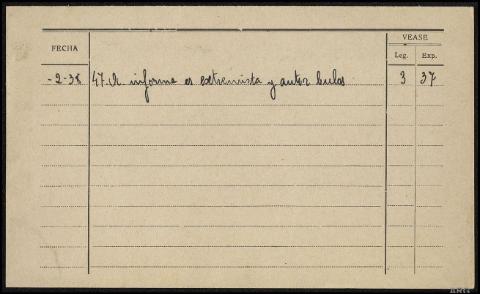 VEASE
FECHA
Leg. Exp.
-2-38 47. informe es extremista y autor bulos 3 37